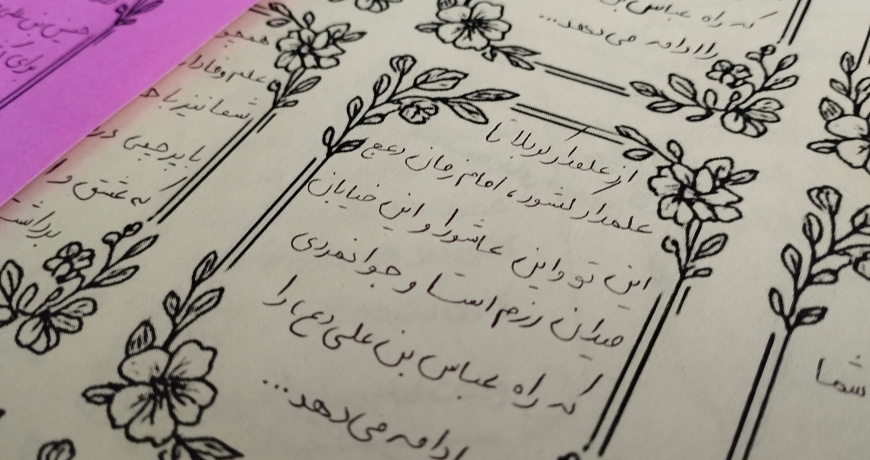 که راه عباس بن
را ادامه می‌دهد...
از علمدار کربلا تا
علمدار کشور، امام زمان (عج)
این تو و این عاشورا و این خیابان
میدان رزم است و جوانمردی
که راه عباس بن علی (ع) را
ادامه می‌دهد...
حسین بن علی
برای
همچو
علم وفادا
شما نیز با
با پرچمی در
که عشق و
برداشت
شما